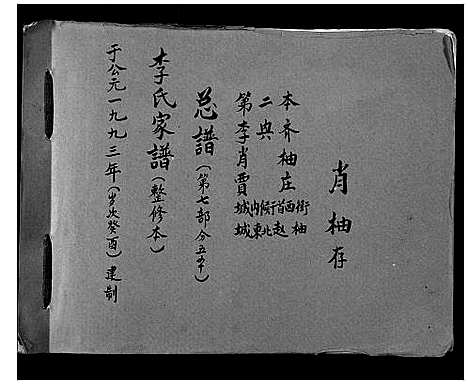 肖柚存
本齐柚庄
二典
第李肖賈
城内候行首西街
城東北赵柚
总譜（第七部分五本）
李氏家譜（整修本）
于公元一九九三年（岁次癸酉）建制